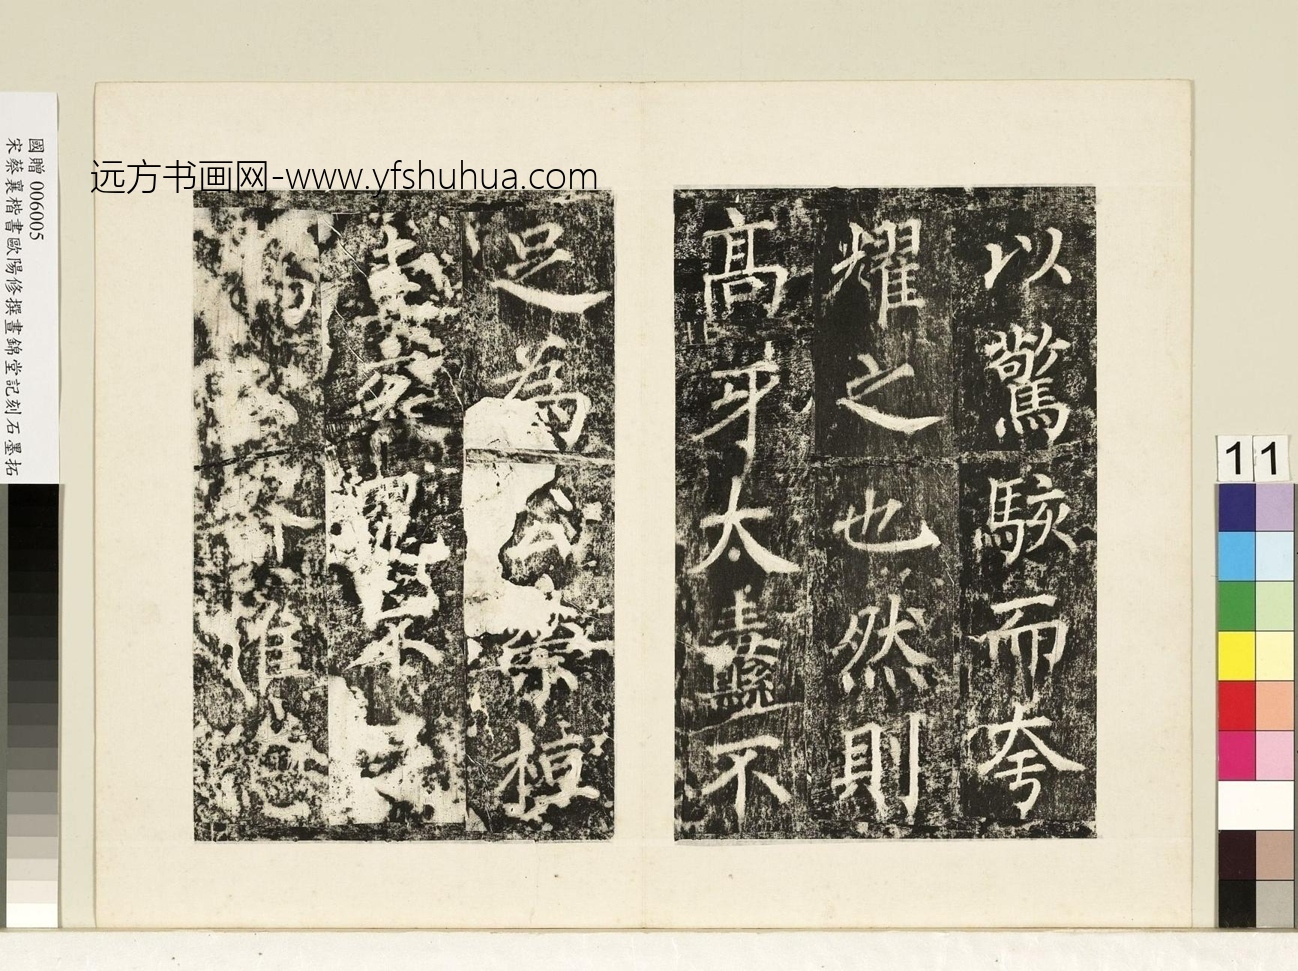 國贈 006005
宋蔡襄楷書歐陽修撰晝錦堂記刻石墨拓
远方书画网-www.yfshuhua.com
以驚駭而夸
耀之也然則
高牙大纛不
足為公榮桓
圭袞不
惟
11